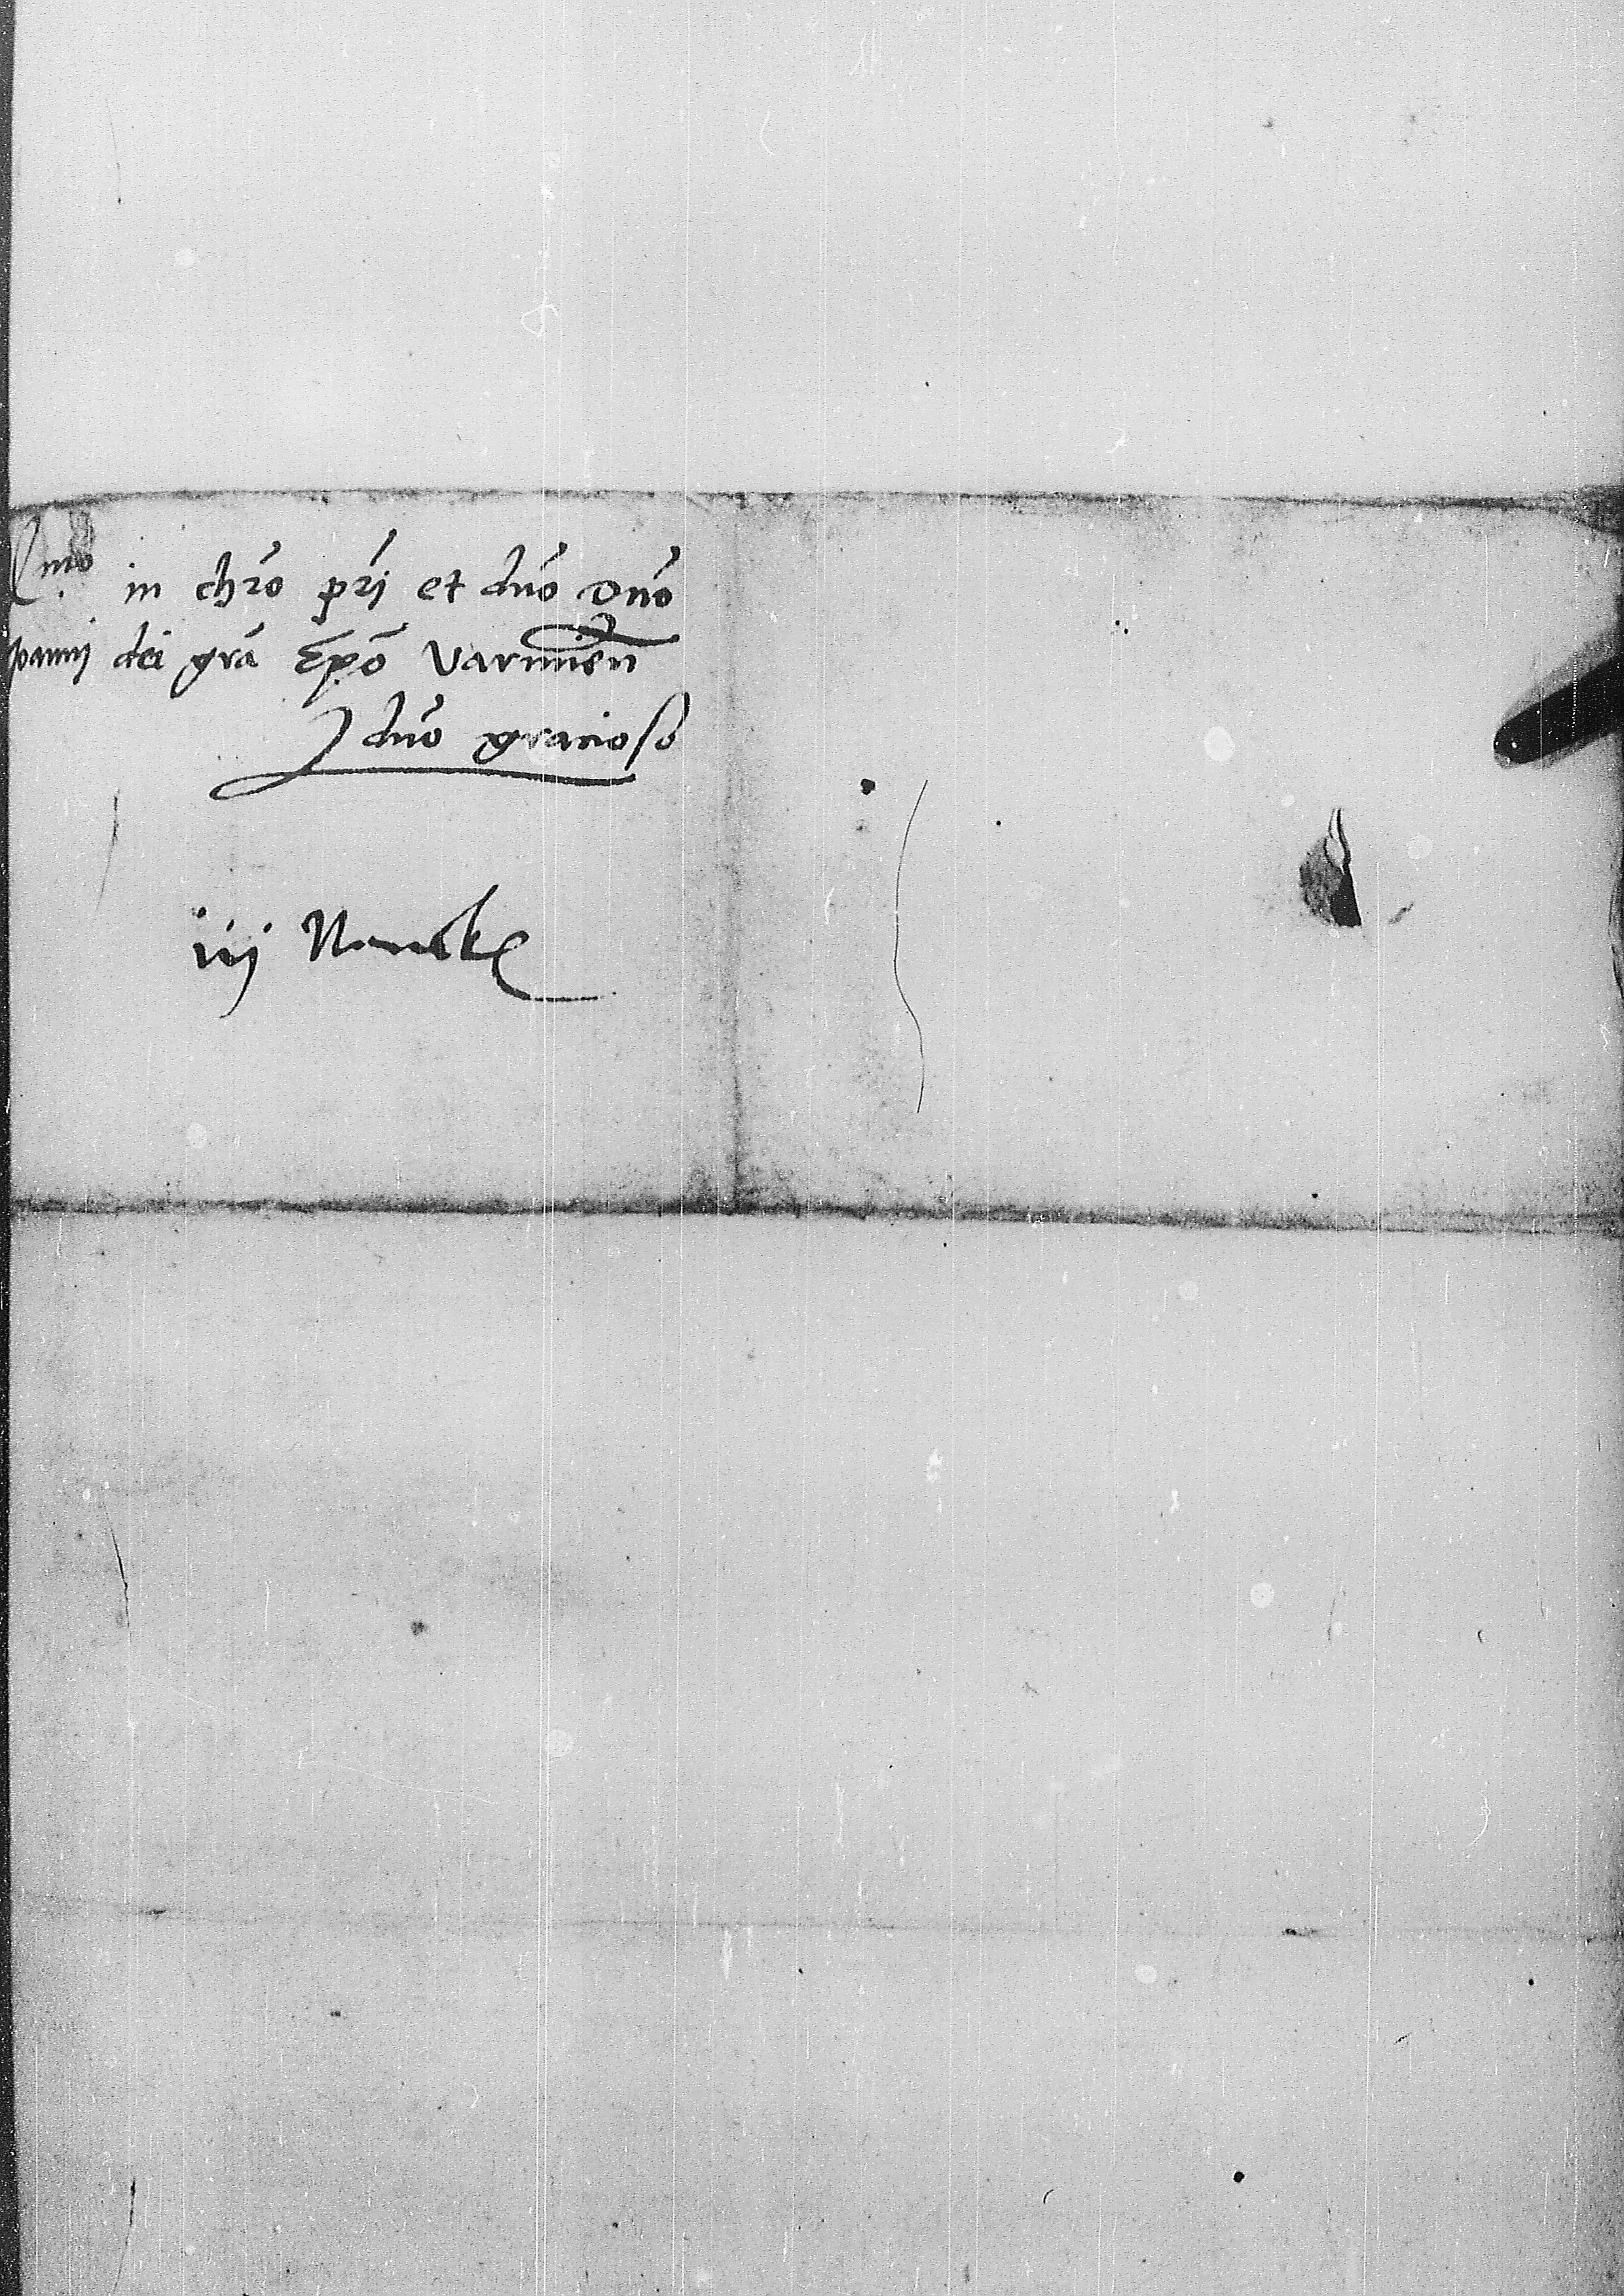 mo in chr̄o pr̄i et dn̄o Dn̄o
oanni dei grā Epō Varmieñ
dn̄o gracioso
iij Nonak